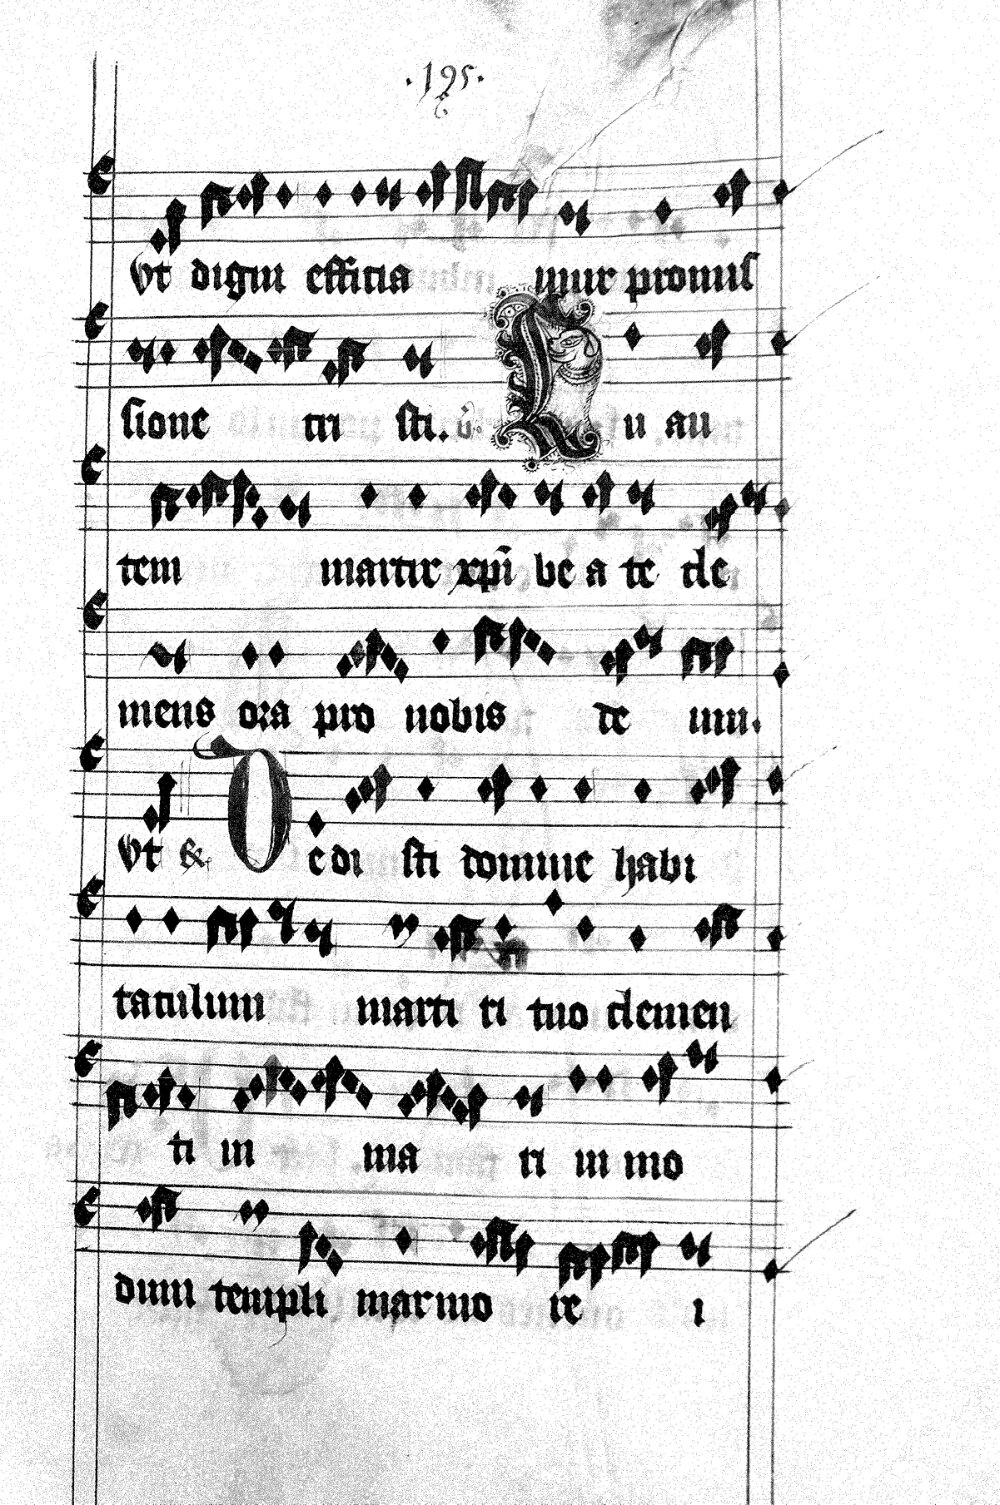 ·195·
Ut digni efficia mur promis
sione cri sti. v̉. Tu au
tem martir xp̄i be a te cle
mens ora pro nobis de um.
Ut & Dedi sti domine habi
taculum marti ri tuo clemen
ti in ma ri in mo
dum templi marmo re i